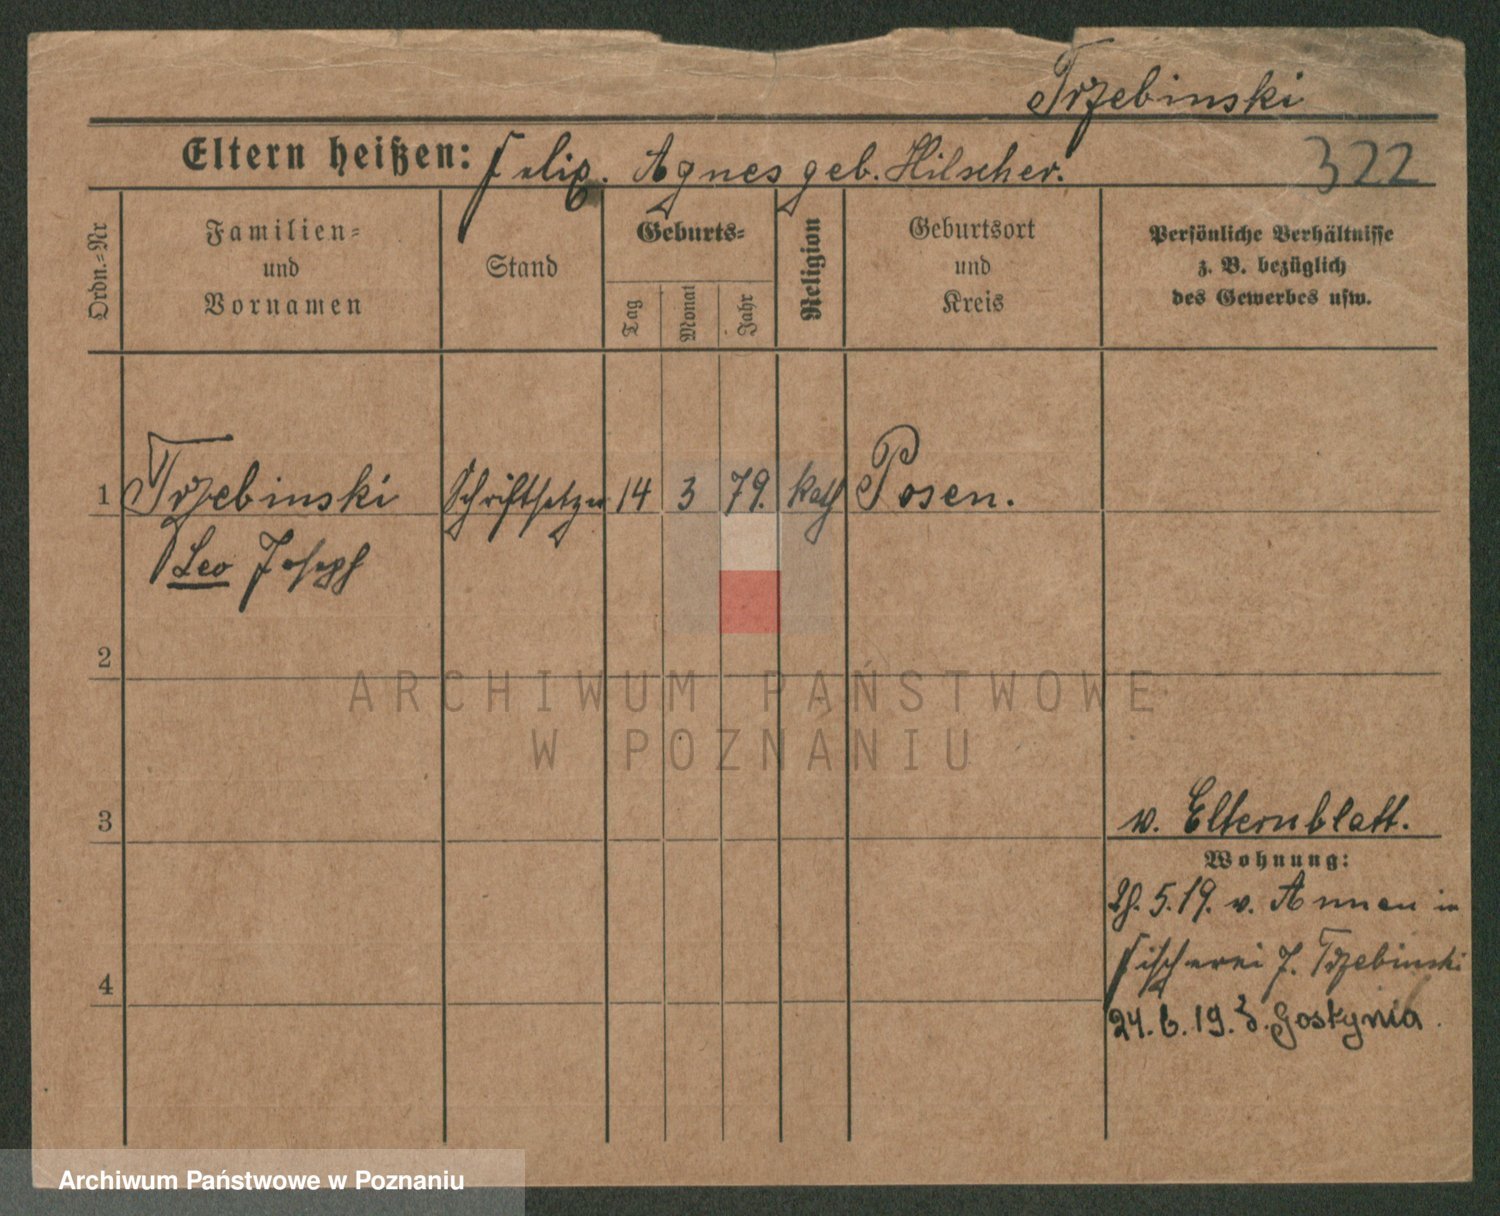 Trzebinski
Eltern heißen: Felix. Agnes geb. Hilscher.
322
Ordn.-Nr
Familien-
und
Vornamen
Stand
Geburts-
Tag
Monat
Jahr
Religion
Geburtsort
und
Kreis
Persönliche Verhältnisse
z. B. bezüglich
des Gewerbes usw.
1 Trzebinski Schriftsetzer 14 3 79. kath Posen.
Leo Joseph
2
ARCHIWUM PAŃSTWOWE
W POZNANIU
3
v. Elternblatt.
Wohnung:
5.19. v. Annen in
Fischerei J. Trzebinski
4
24.6.19. Gostynia.
Archiwum Państwowe w Poznaniu